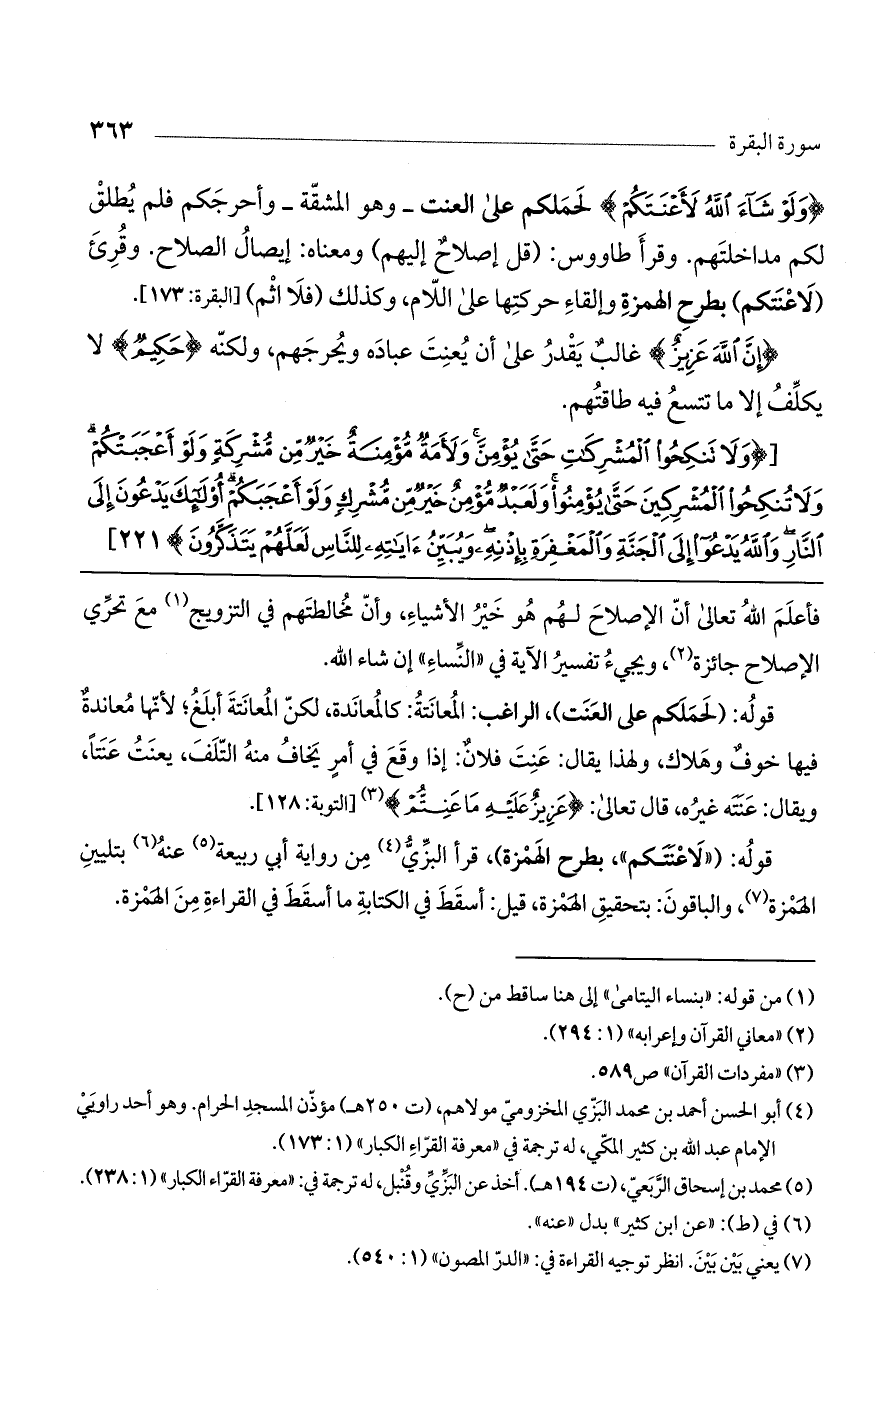 سورة البقرة ٣٦٣
﴿وَلَوْ شَآءَ ٱللَّهُ لَأَعْنَتَكُمْ﴾ لَحَمَلكم علىٰ العنت ـ وهو المشقّة ـ وأحرجَكم فلم يُطلقْ
لكم مداخلتَهم. وقرأَ طاووس: (قل إصلاحٌ إليهم) ومعناه: إيصالُ الصلاح. وقُرِئَ
(لَاعْنَتَكم) بطرحِ الهمزةِ وإلقاءِ حركتِها علىٰ اللّام، وكذلك (فلَا اثْم) [البقرة: ١٧٣].
﴿إِنَّ ٱللَّهَ عَزِيزٌ﴾ غالبٌ يَقْدرُ علىٰ أن يُعنِتَ عبادَه ويُحرجَهم، ولكنّه ﴿حَكِيمٌ﴾ لا
يكلِّفُ إلا ما تتسعُ فيه طاقتُهم.
[﴿وَلَا تَنكِحُوا۟ ٱلْمُشْرِكَٰتِ حَتَّىٰ يُؤْمِنَّ ۚ وَلَأَمَةٌ مُّؤْمِنَةٌ خَيْرٌ مِّن مُّشْرِكَةٍ وَلَوْ أَعْجَبَتْكُمْ ۗ
وَلَا تُنكِحُوا۟ ٱلْمُشْرِكِينَ حَتَّىٰ يُؤْمِنُوا۟ ۚ وَلَعَبْدٌ مُّؤْمِنٌ خَيْرٌ مِّن مُّشْرِكٍ وَلَوْ أَعْجَبَكُمْ ۗ أُو۟لَٰٓئِكَ يَدْعُونَ إِلَى
ٱلنَّارِ ۖ وَٱللَّهُ يَدْعُوٓا۟ إِلَى ٱلْجَنَّةِ وَٱلْمَغْفِرَةِ بِإِذْنِهِۦ ۖ وَيُبَيِّنُ ءَايَٰتِهِۦ لِلنَّاسِ لَعَلَّهُمْ يَتَذَكَّرُونَ﴾ ٢٢١]
فأعلَمَ اللهُ تعالىٰ أنّ الإصلاحَ لـهُم هُو خَيْرُ الأشياءِ، وأنّ مُخالطتَهم في التزويج(١) معَ تحرِّي
الإصلاحِ جائزة(٢)، ويجيءُ تفسيرُ الآية في «النِّساءِ» إن شاء الله.
قولُه: (لَحَمَلَكم على العَنَت)، الراغب: المُعانَتةُ: كالمُعانَدة، لكنّ المُعانَتةَ أبلَغُ؛ لأنّها مُعاندةٌ
فيها خوفٌ وهَلاك، ولهذا يقال: عَنِتَ فلانٌ: إذا وقَعَ في أمرٍ يَخافُ منهُ التّلَفَ، يعنَتُ عَنَتاً،
ويقال: عَنّتَه غيرُه، قال تعالىٰ: ﴿عَزِيزٌ عَلَيْهِ مَا عَنِتُّمْ﴾(٣) [التوبة: ١٢٨].
قولُه: («لَاعْنَتَكم»، بطرحِ الهَمْزة)، قرأ البزِّيُّ(٤) مِن رواية أبي ربيعة(٥) عنهُ(٦) بتليينِ
الهَمْزة(٧)، والباقونَ: بتحقيقِ الهَمْزة، قيل: أسقَطَ في الكتابةِ ما أسقَطَ في القراءةِ مِنَ الهَمْزة.
(١) من قوله: «بنساء اليتامىٰ» إلى هنا ساقط من (ح).
(٢) «معاني القرآن وإعرابه» (١: ٢٩٤).
(٣) «مفردات القرآن» ص٥٨٩.
(٤) أبو الحسن أحمد بن محمد البَزّي المخزوميّ مولاهم، (ت ٢٥٠هـ) مؤذّن المسجدِ الحرام. وهو أحد راويَيْ
الإمام عبد الله بن كثير المكّي، له ترجمة في «معرفة القرّاءِ الكبار» (١: ١٧٣).
(٥) محمد بن إسحاق الرَّبَعيّ، (ت ١٩٤هـ). أخذ عن البَزِّيِّ وقُنْبل، له ترجمة في: «معرفة القرّاء الكبار» (١: ٢٣٨).
(٦) في (ط): «عن ابن كثير» بدل «عنه».
(٧) يعني بَيْن بَيْنَ. انظر توجيه القراءة في: «الدرّ المصون» (١: ٥٤٠).